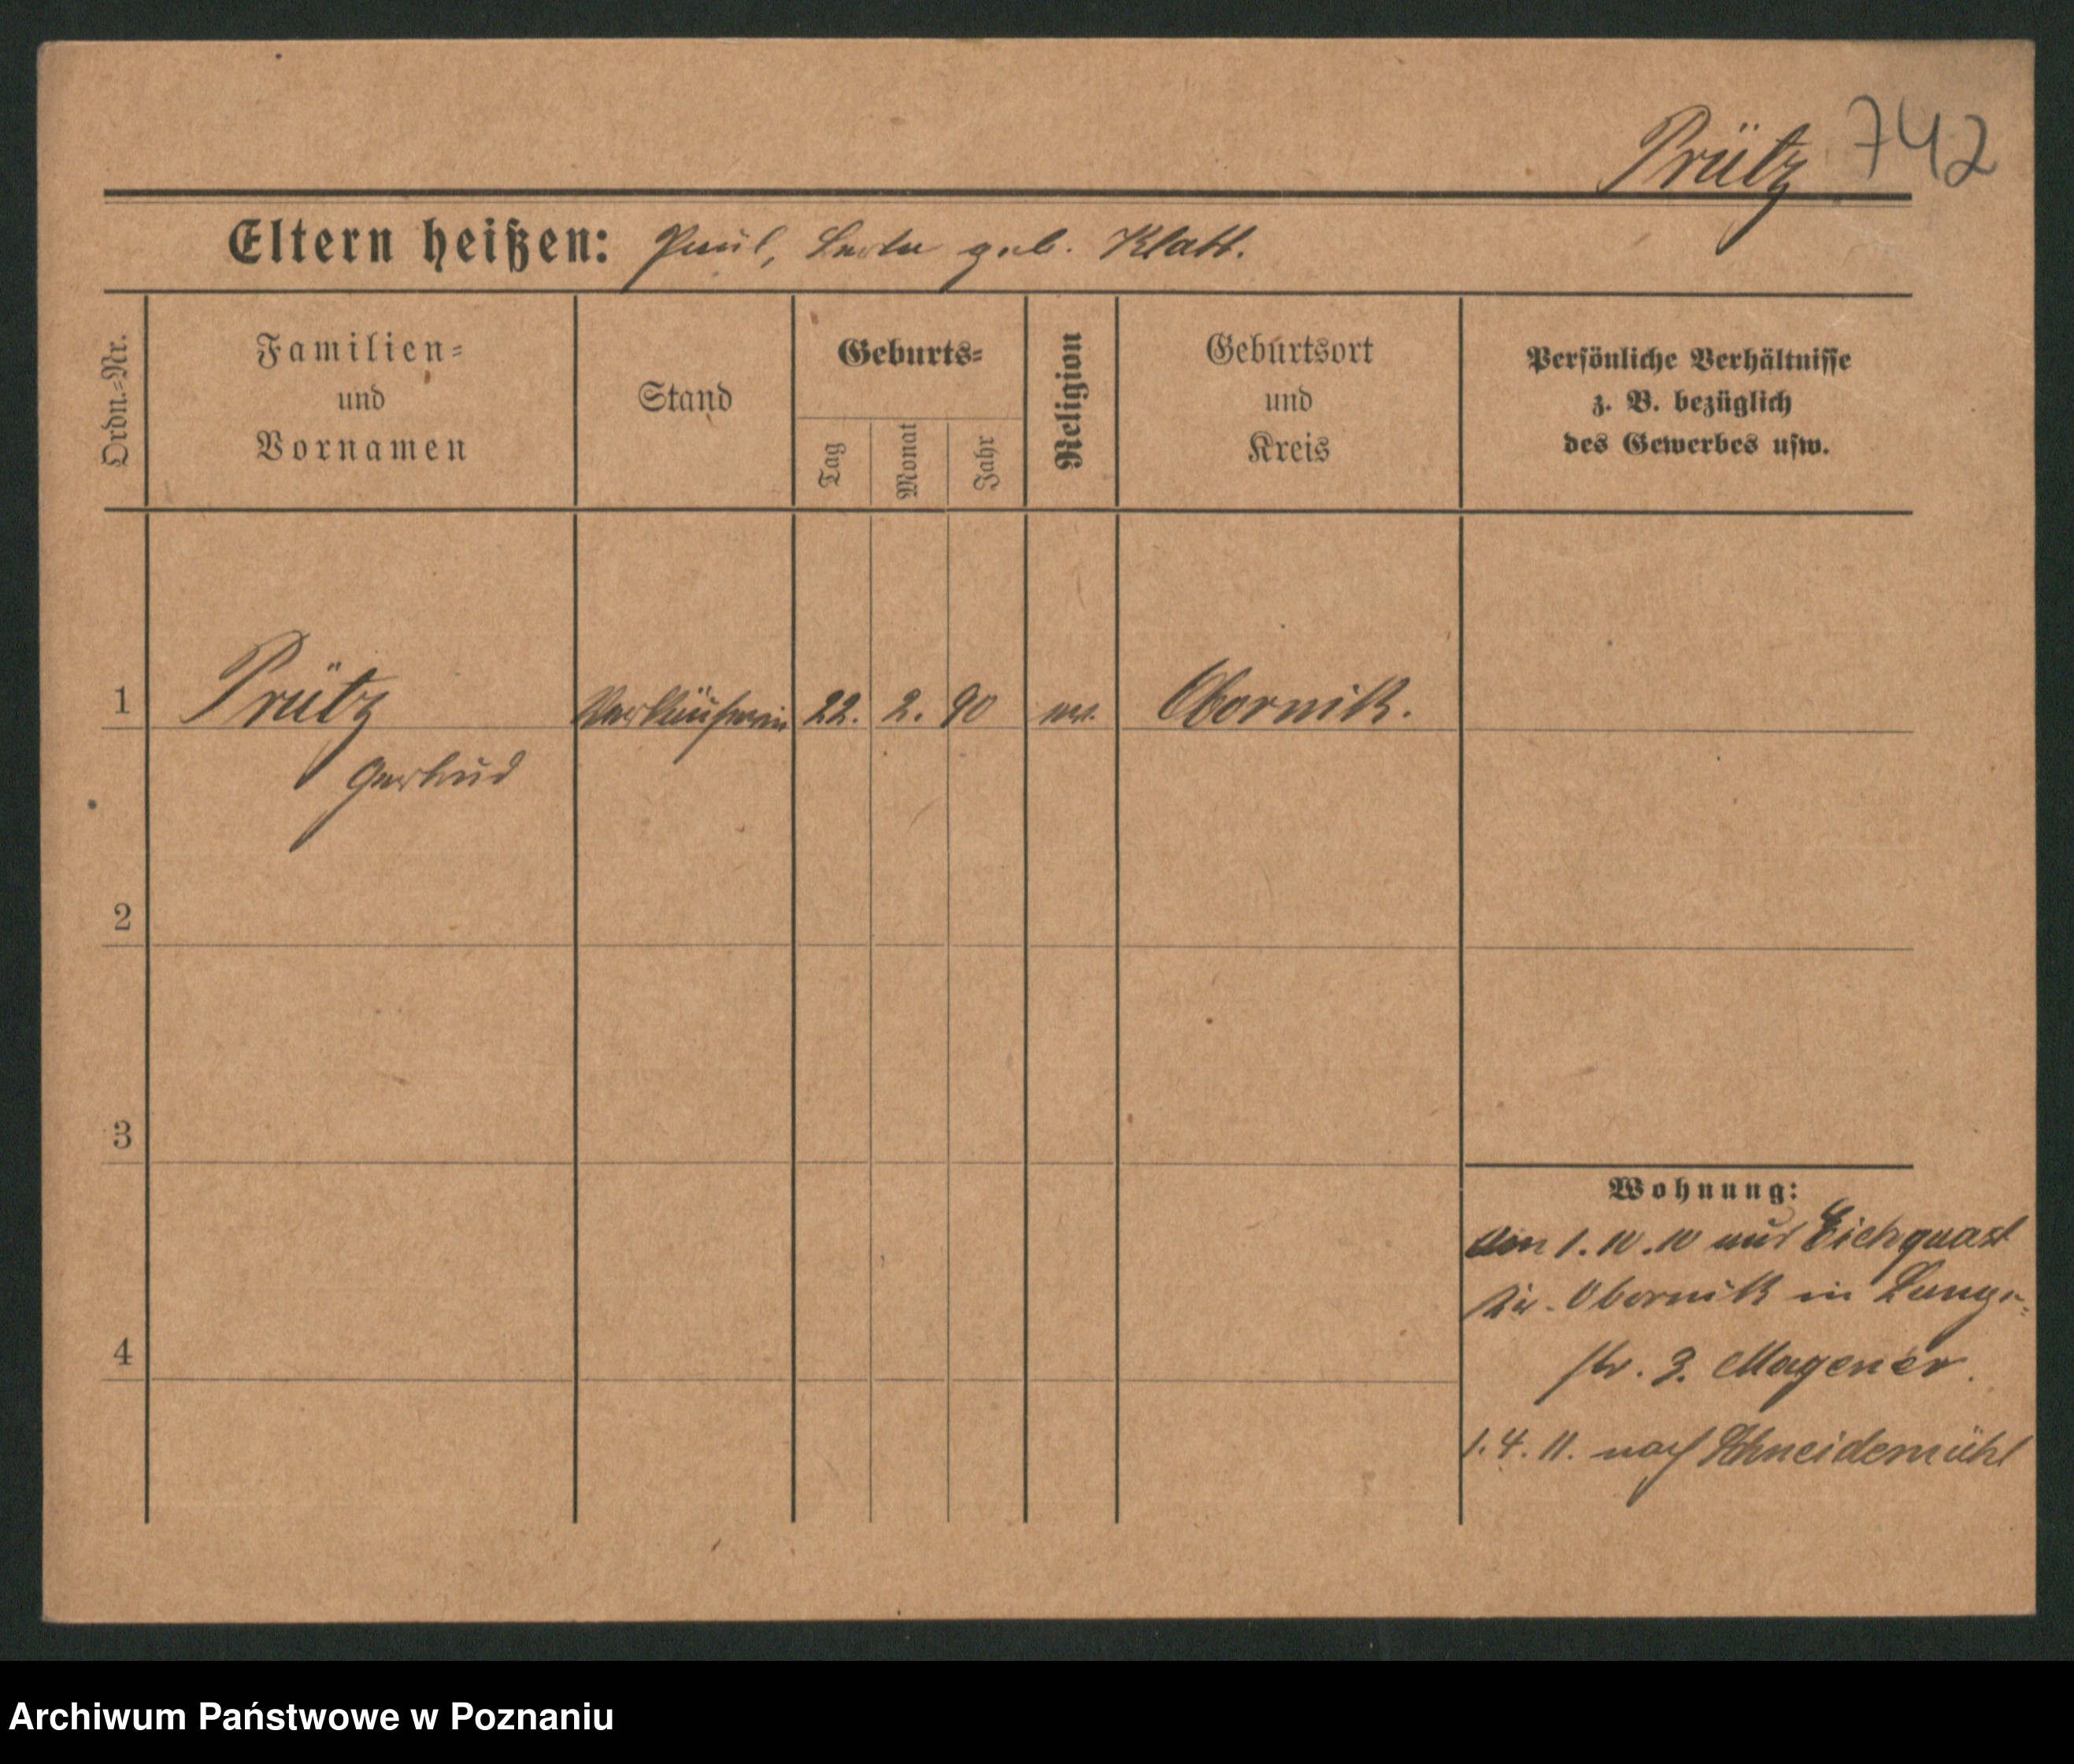 742
Prütz
Eltern heißen: Paul, Berta geb. Klatt.
Ordn.=Nr.
Familien=
und
Vornamen
Stand
Geburts=
Tag
Monat
Jahr
Religion
Geburtsort
und
Kreis
Persönliche Verhältnisse
z. B. bezüglich
des Gewerbes usw.
1 Prütz Verkäuferin 22. 2. 90 ev. Obornik.
Gertrud
2
3
4
Wohnung:
Am 1.10.10 aus Eichquast
Kr. Obornik in Lange-
str. 3. Magener.
1.4.11. nach Schneidemühl
Archiwum Państwowe w Poznaniu